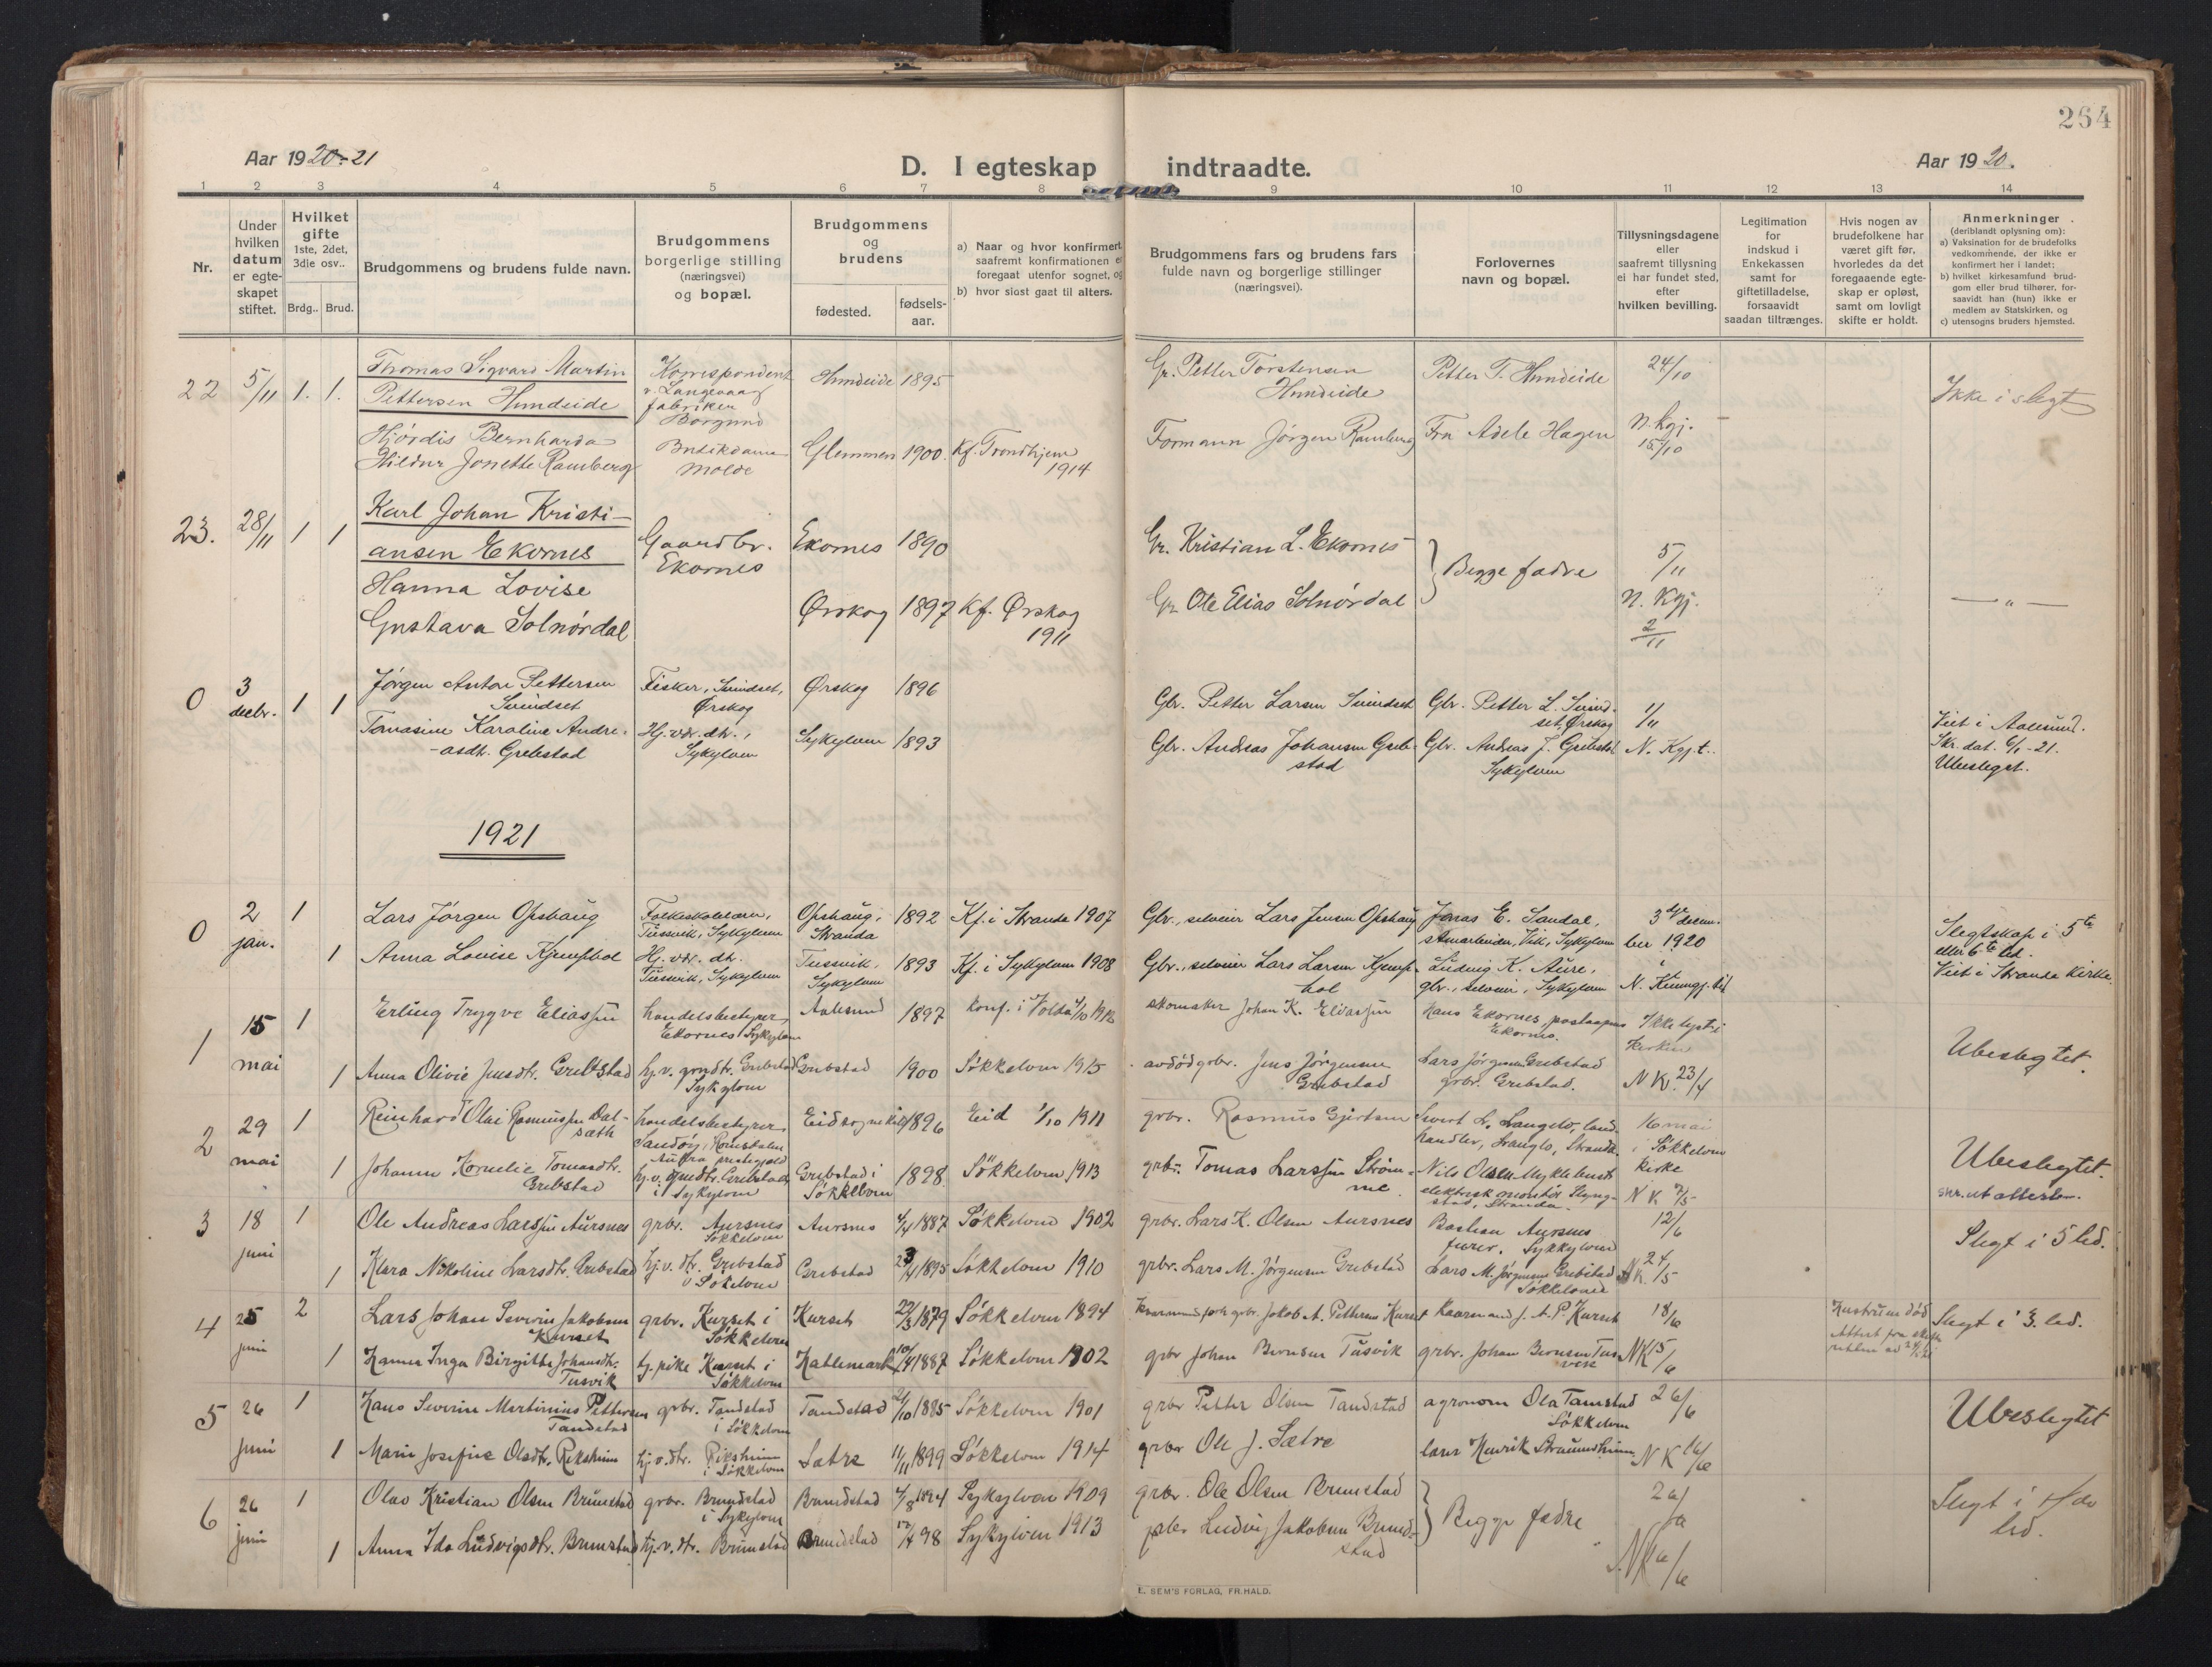 264
Aar 1920-21
D. I egteskap indtraadte.
Aar 1920.
1 2 3 4 5 6 7 8 9 10 11 12 13 14
Nr.
Under hvilken datum er egte-skapet stiftet.
Hvilket gifte 1ste, 2det, 3die osv..
Brdg.. Brud.
Brudgommens og brudens fulde navn.
Brudgommens borgerlige stilling (næringsvei) og bopæl.
Brudgommens og brudens
fødested.
fødsels-aar.
a) Naar og hvor konfirmert saafremt konfirmationen er foregaat utenfor sognet, og
b) hvor sidst gaat til alters.
Brudgommens fars og brudens fars fulde navn og borgerlige stillinger (næringsvei).
Forlovernes navn og bopæl.
Tillysningsdagene eller saafremt tillysning ei har fundet sted, efter hvilken bevilling.
Legitimation for indskud i Enkekassen samt for giftetilladelse, forsaavidt saadan tiltrænges.
Hvis nogen av brudefolkene har været gift før, hvorledes da det foregaaende egte-skap er opløst, samt om lovligt skifte er holdt.
Anmerkninger (deriblandt oplysning om):
a) Vaksination for de brudefolks vedkommende, der ikke er konfirmert her i landet;
b) hvilket kirkesamfund brud-gom eller brud tilhører, for-saavidt han (hun) ikke er medlem av Statskirken, og
c) utensogns bruders hjemsted.
22 5/11 1. 1. Thomas Sigvard Martin Pettersen Hundeide
Korrespondent v. Langevaag fabriker Borgund
Hundeide 1895
Gr. Petter Torstensen Hundeide
Petter T. Hundeide
24/10
Ikke i slegt
Hjørdis Bernharda Hildur Jonette Ramberg
Butikdame Molde
Glemmen 1900. Kf. Trondhjem 1914
Formann Jørgen Ramberg
Fru Adele Hagen
N. Kgj. 15/10
23. 28/11 1 1 Karl Johan Kristi-
ansen Ekornes
Gaardbr. Ekornes
Ekornes 1890
Gr. Kristian L. Ekornes
Begge fædre
5/11
Hanna Lovise
Gustava Solnørdal
Ørskog 1897 Kf. Ørskog 1911
Gr. Ole Elias Solnørdal
N. Kgj. 2/11
— " —
0 3 decbr. 1 1 Jørgen Anton Pettersen
Fisker, Ørskog
Ørskog 1896
Gbr. Petter Larsen
Gbr. Petter L. Ørskog
1/11
Tomasine Karoline Andre-
asdt. Grebstad
Hj.vær. dtr., Sykylven
Sykylven 1893
Gbr. Andreas Johansen Greb-stad
Gbr. Andreas J. Grebstad Sykylven
N. Kgj.t.
Viet i Aalesund.
Skr. dat. 6/1-21.
Ubeslegt.
1921
0 2 jan. 1 Lars Jørgen Opshaug
Folkeskolelærer, Tusvik, Sykylven
Opshaug, Stranda
1892 Kf. i Stranda 1907
Gbr., selveier Lars Jensen Opshaug
Jonas E. Sandal, Vik, Sykylven
3die decem-ber 1920
Slegtskap i 5te eller 6te led.
Viet i Stranda kirke
1 Anna Lovise Kjemphol
Hj. vær. dtr. Tussvik, Sykylven
Tussvik, Sykylven
1893 Kf. i Sykylven 1908
Gbr., selveier Lars Larsen Kjemp-hol
Ludvig K. Aure, gbr., selveier, Sykylven
1 15 mai 1 Erling Trygve Eliassen
handelsbestyrer, Ekornes, Sykylven
Aalesund 1897
konf. i Volda 4/10 1912
skomaker Johan K. Eliassen
Hans Ekornes, Ekornes.
Ikke lyst i kirken
Ubeslegtet.
1 Anna Olivie Jensdtr. Grebstad
hj.v. grndtr. Grebstad Sykylven
Grebstad 1900 Søkkelven 1915
avdød grbr. Jens Jørgensen Grebstad
Lars Jørgensen Grebstad grbr. Grebstad.
N K. 23/4
2 29 mai 1 Reinhard Olai Rasmussen Dal-sæth
handelsbestyrer Sandøy, Romsdalen
1896 Eid 1/10 1911
grbr. Rasmus Gjertsen
Sivert L. Langlo, land-handler, Langlo, Stranda
16 mai i Søkkelven kirke
Ubeslegtet.
1 Johanna Kornelie Tomasdtr. Grebstad
hj.v. grndtr. Grebstad i Sykylven
Grebstad i Søkkelven 1898 Søkkelven 1913
grbr. Tomas Larssen Strøm-me.
Nils Olsen Myklebust elektrisk montør Stranda.
3 18 juni 1 Ole Andreas Larssen Aursnes
grbr. Aursnes Søkkelven
Aursnes 1887 Søkkelven 1902
grbr. Lars K. Olsen Aursnes
Bastian Aursnes Sykkylven
12/6
Slegt i 5 led.
1 Klara Nikoline Larsdtr. Grebstad
hj.v. dtr. Grebstad i Søkelven
Grebstad 1895 Søkkelven 1910
grbr. Lars M. Jørgensen Grebstad
Lars M. Jørgensen Grebstad Søkkelven
NK. 24/5
4 25 juni 2 Lars Johan Severin Jakobsen Kurset
grbr. Kurset i Søkkelven
Kurset 22/3 1879 Søkkelven 1894
grbr. Jakob A. Pettersen Kurset
J. A. P. Kurset
18/6
Hustruen død
Slegt i 3. led.
1 Hanna Inga Birgitte Johansdtr. Tusvik
tj. pike Kurset i Søkkelven
1887 Søkkelven 1902
grbr Johan Berntsen Tusvik
grbr. Johan Berntsen Tusvik
NK 15/6
5 26 juni 1 Hans Severin Martinius Pettersen Tandstad
grbr. Tandstad i Søkkelven
Tandstad 21/10 1885 Søkkelven 1901
grbr Petter Olsen Tandstad
agronom Ola Tamstad Søkkelven
26/6
Ubeslegtet
1 Marie Josefine Olsdtr. Riksheim
hj.v.dtr. Riksheim i Søkkelven
Sætre 11/11 1899 Søkkelven 1914
grbr Ole J. Sætre
lærer Henrik Straumsheim
N K 16/6
6 26 juni 1 Olav Kristian Olsen Brunstad
grbr. Brundstad i Sykylven
Brundstad 1894 Sykylven 1909
grbr. Ole Olsen Brunstad
Begge fædre
26/6
Slegt i led.
1 Anna Ida Ludvigsdtr. Brunstad
hj.v.dtr. Brunstad
Brundstad 98 Sykylven 1913
Ludvig Jakobsen Brund-stad
NK 16/6
E. SEM'S FORLAG, FR.HALD.